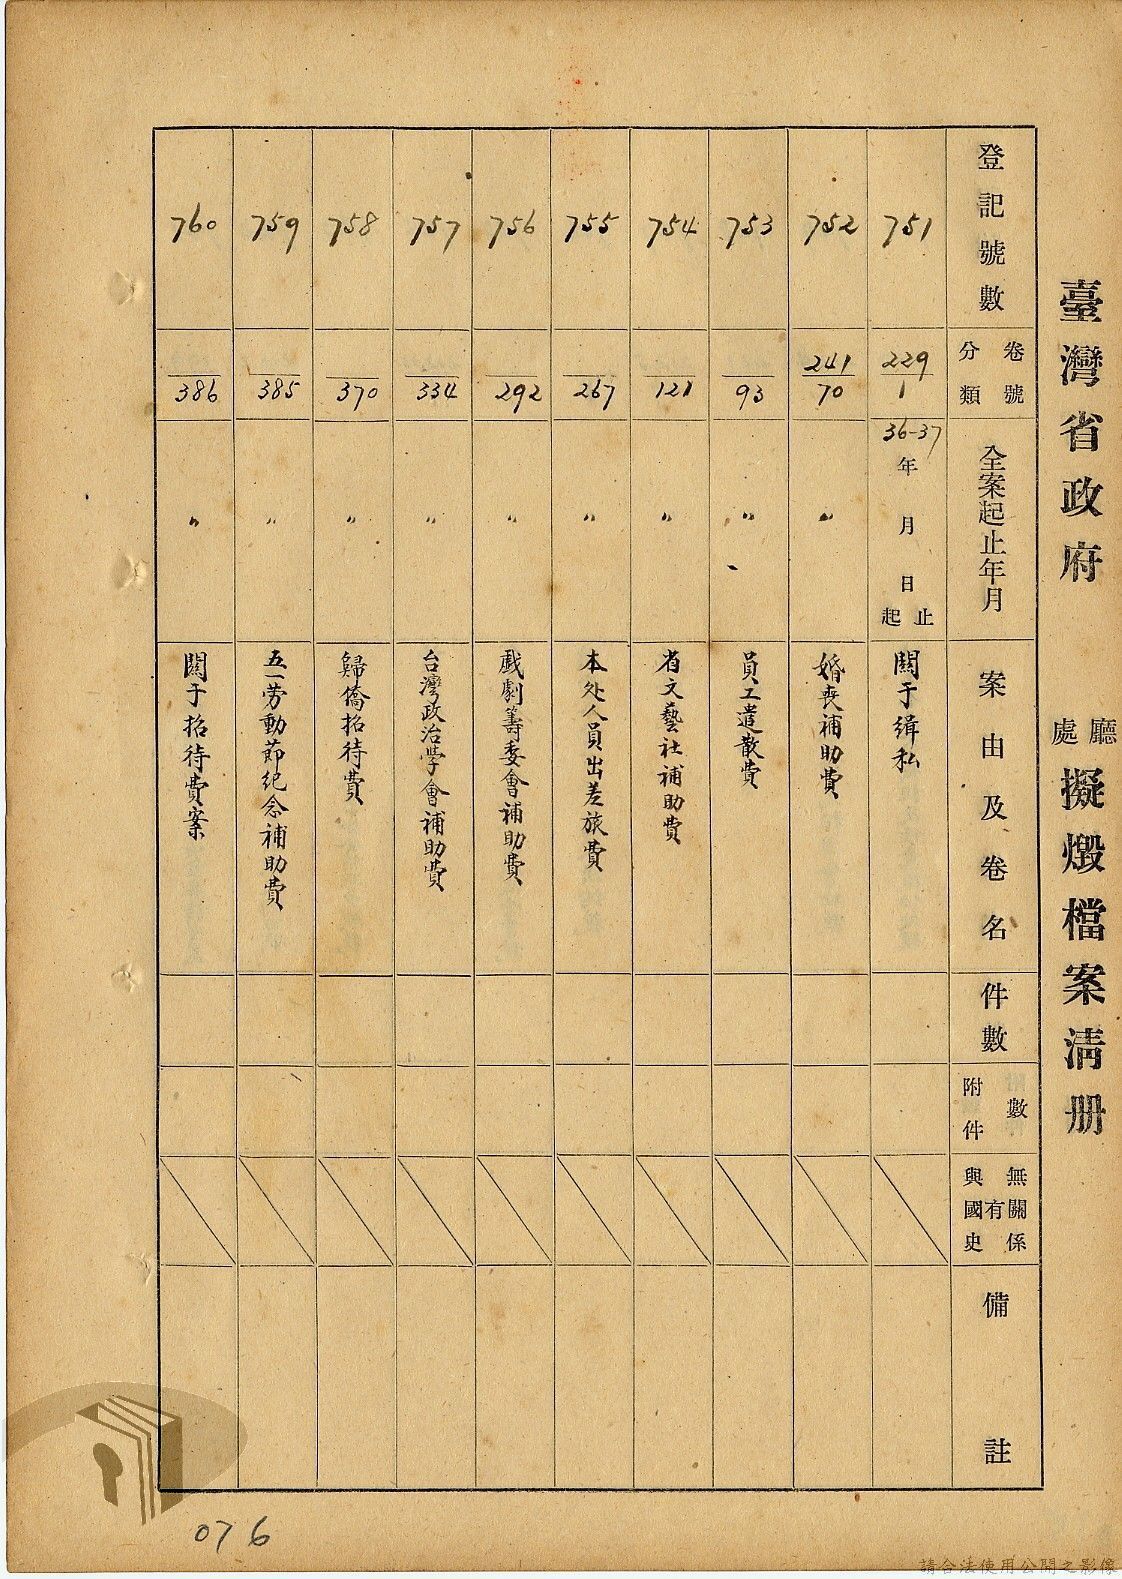 臺灣省政府
廳
處
擬燬檔案清册
登記號數
卷號
分類
全案起止年月
案由及卷名
件數
附件
數
與國史
有
無關係
備註
751
229
1
36-37
年月日
起止
關于緝私
752
241
70
〃
婚喪補助費
753
93
〃
員工遣散費
754
121
〃
省文藝社補助費
755
267
〃
本处人員出差旅費
756
292
〃
戲劇籌委會補助費
757
334
〃
台灣政治學會補助費
758
370
〃
歸僑招待費
759
385
〃
五一劳動節纪念補助費
760
386
〃
關于招待費案
076
請合法使用公開之影像